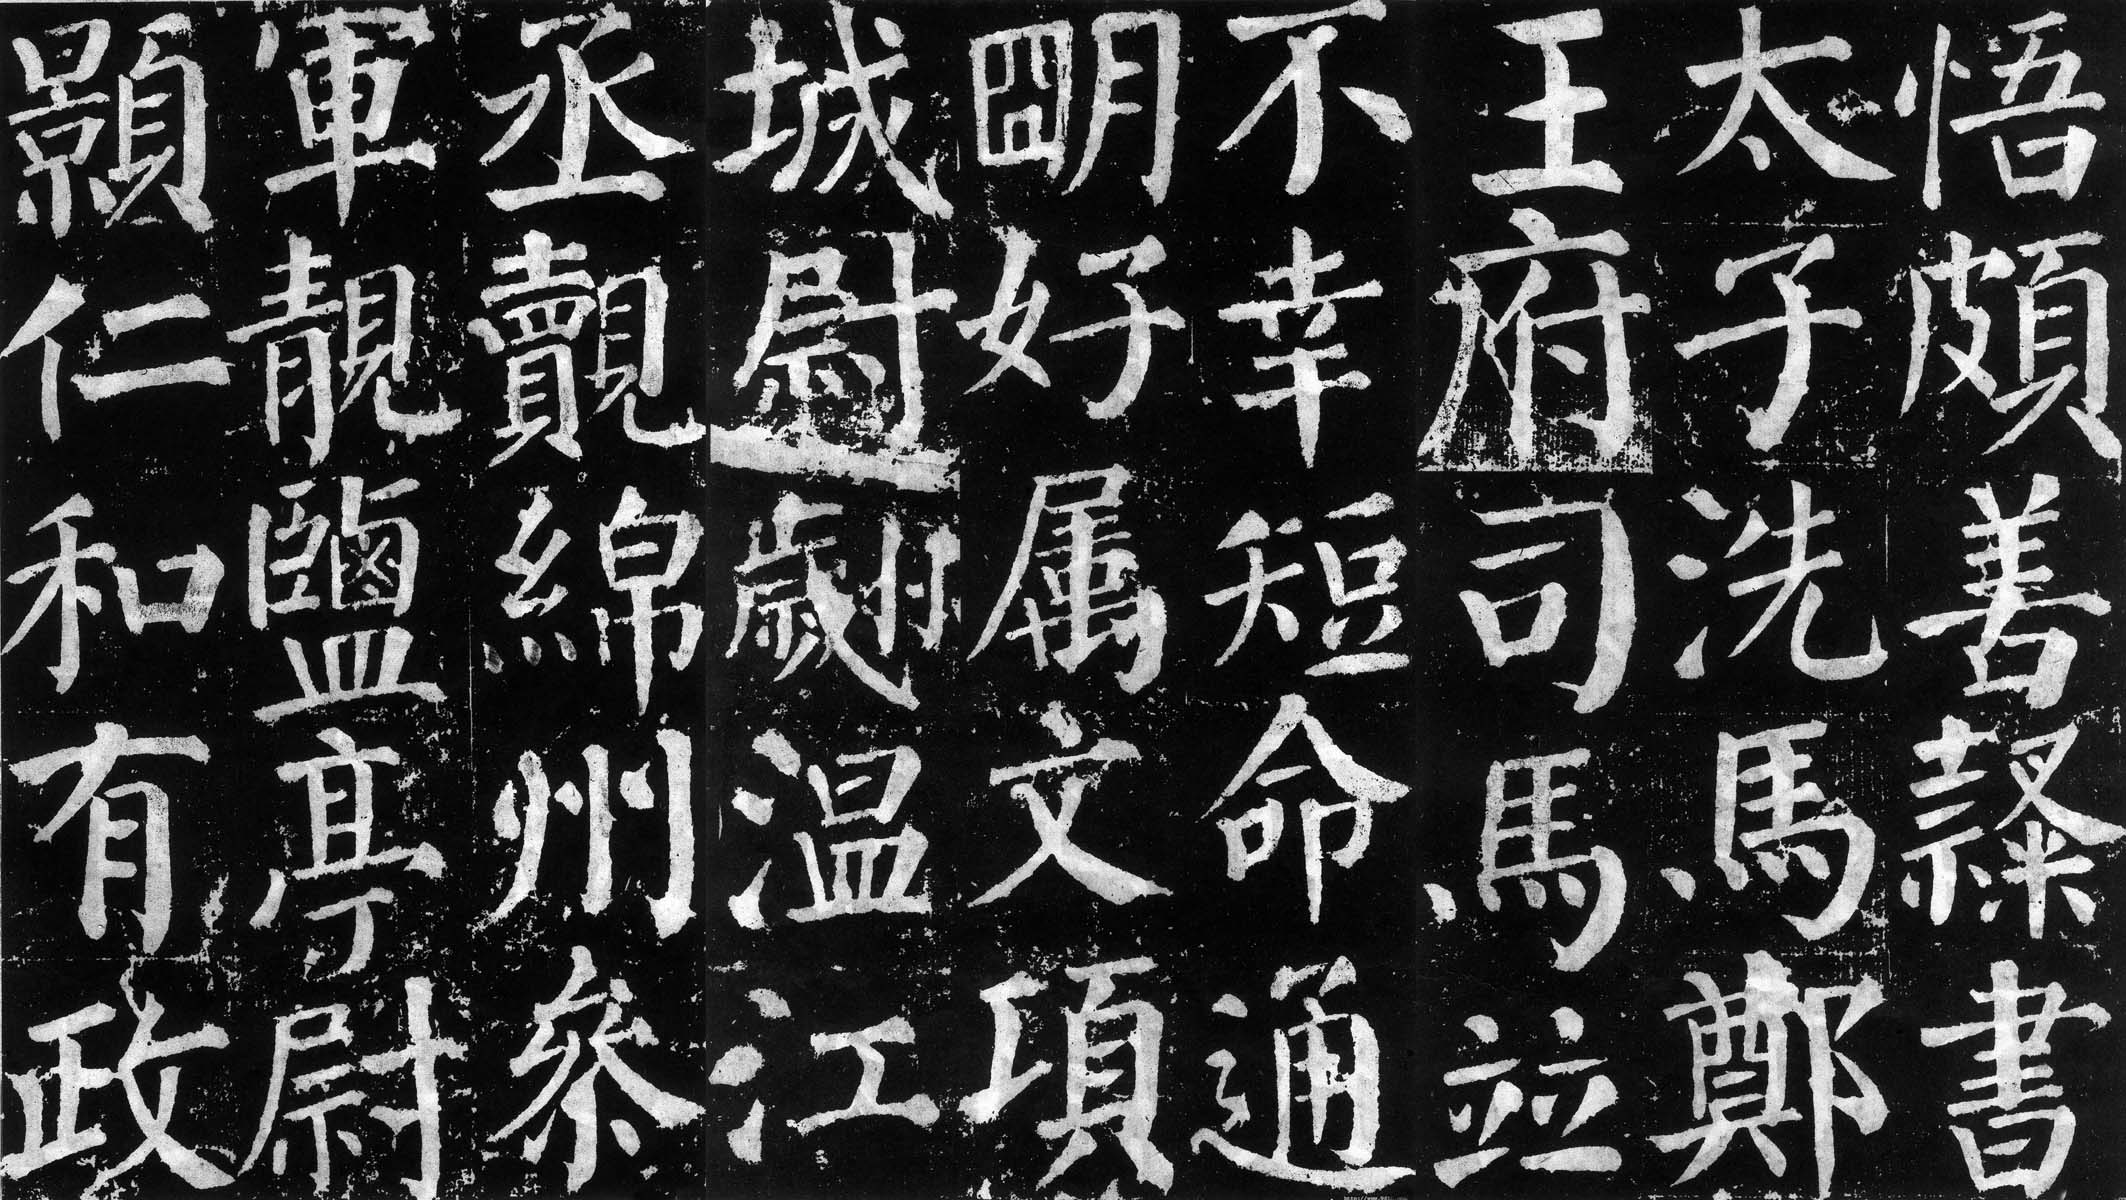 悟頗善隸書
太子洗馬鄭
王府司馬並
不幸短命通
朙好属文項
城尉翽温江
丞覿綿州參
軍靚鹽亭尉
顥仁和有政